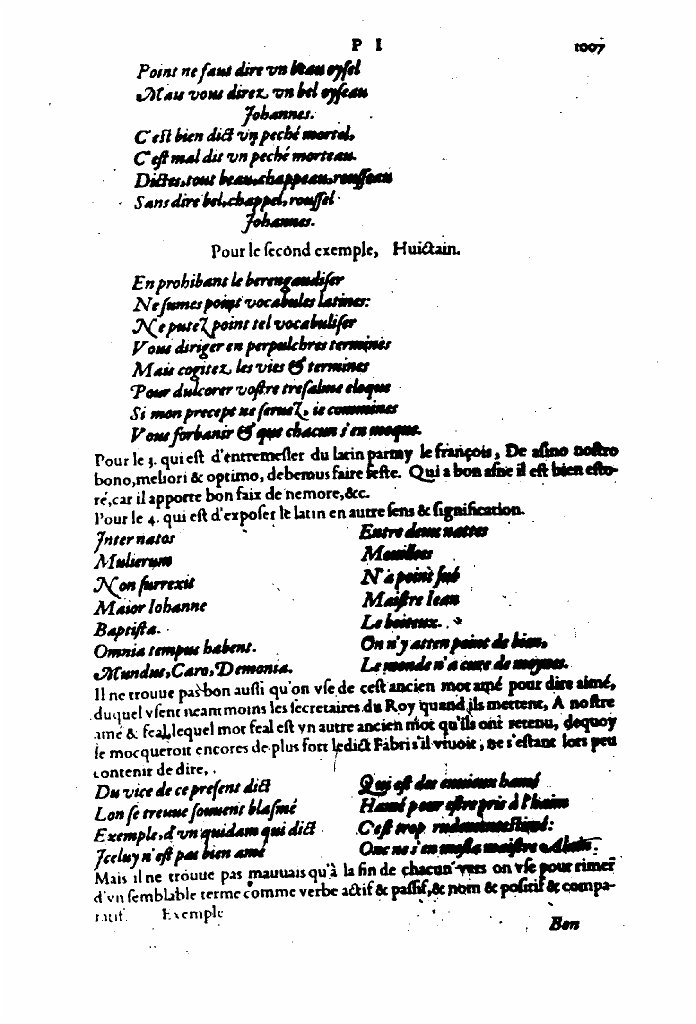 P I 1007
Point ne faut dire vn beau oysel
Mais vous direz vn bel oyseau
Johannes.
C'est bien dict vn peché mortel,
C'est mal dit vn peché morteau.
Dictes, tout beau, chappeau, rousseau
Sans dire bel, chappel, roussel
Johannes.
Pour le second exemple, Huictain.
En prohibant le berengaudiser
Ne sumes point vocabules latines:
Ne putez point tel vocabuliser
Vous diriger en perpulchres termines
Mais cogitez les vies & termines
Pour dulcorer vostre tresalme eloque
Si mon precept ne seruez, ie commines
Vous forbanir & que chacun s'en moque.
Pour le 3. qui est d'entremesler du latin parmy le françois, De asino nostro
bono, meliori & optimo, debemus faire feste. Qui a bon asne il est bien esto-
ré, car il apporte bon faix de nemore, &c.
Pour le 4. qui est d'exposer le latin en autre sens & signification.
Inter natos Entre deux nattes
Mulierum Mouillees
Non surrexit N'a point sué
Maior Iohanne Maistre Iean
Baptista. Le boiteux.
Omnia tempus habent. On n'y atten point de bien,
Mundus, Caro, Demonia. Le monde n'a cure de moynes.
Il ne trouue pas bon aussi qu'on vse de cest ancien mot amé pour dire aimé,
duquel vsent neantmoins les secretaires du Roy quand ils mettent, A nostre
amé & feal, lequel mot feal est vn autre ancien mot qu'ils ont retenu, dequoy
se mocqueroit encores de plus fort ledict Fabri s'il viuoit, ne s'estant lors peu
contenir de dire,
Du vice de ce present dict Qui est des enuieux hamé
Lon se treuue souuent blasmé Hamé pour estre pris à l'haim
Exemple, d'vn quidam qui dict C'est trop rudement
Iceluy n'est pas bien amé Onc ne s'en mesla maistre Alain.
Mais il ne trouue pas mauuais qu'à la fin de chacun vers on vse pour rimer
d'vn semblable terme comme verbe actif & passif, & nom & positif & compa-
ratif. Exemple
Bon